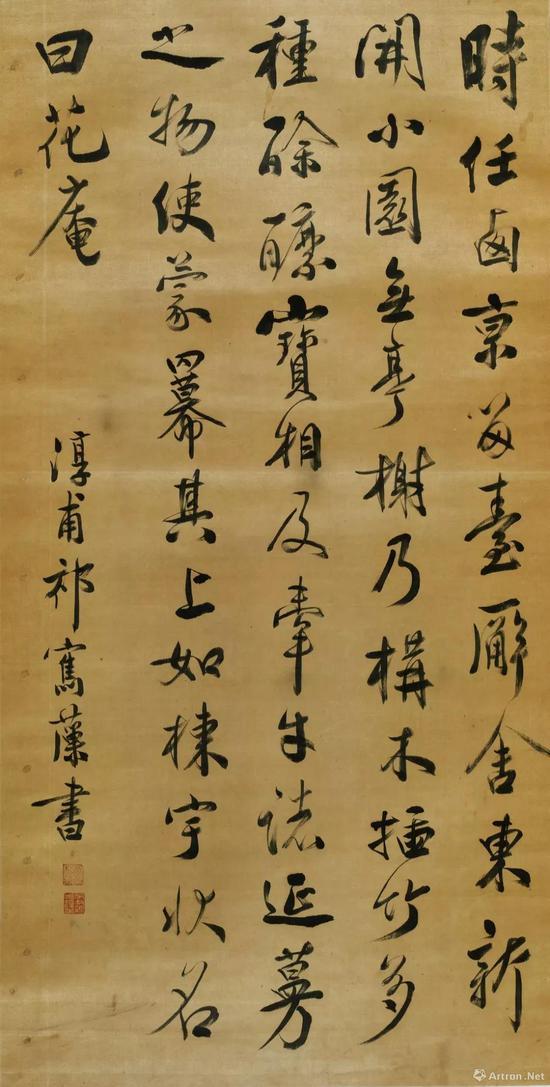 時任卥京留臺廨舍東新
開小園無亭榭乃構木插竹多
種酴醿寶相及牽牛諸延蔓
之物使蒙羃其上如棟宇狀名
曰花庵
淳甫祁寯藻書
Artron.Net